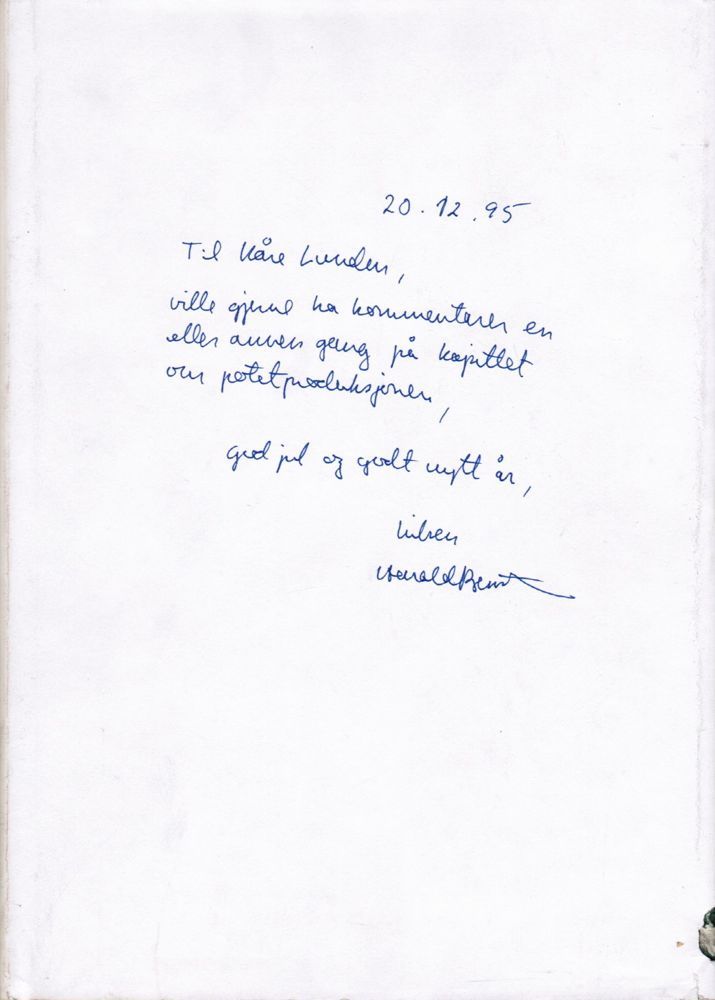 20.12.95
Til Kåre Lunden,
ville gjerne ha kommentarer en
eller annen gang på kapittlet
om potetproduksjonen,
god jul og godt nytt år,
hilsen
Harald